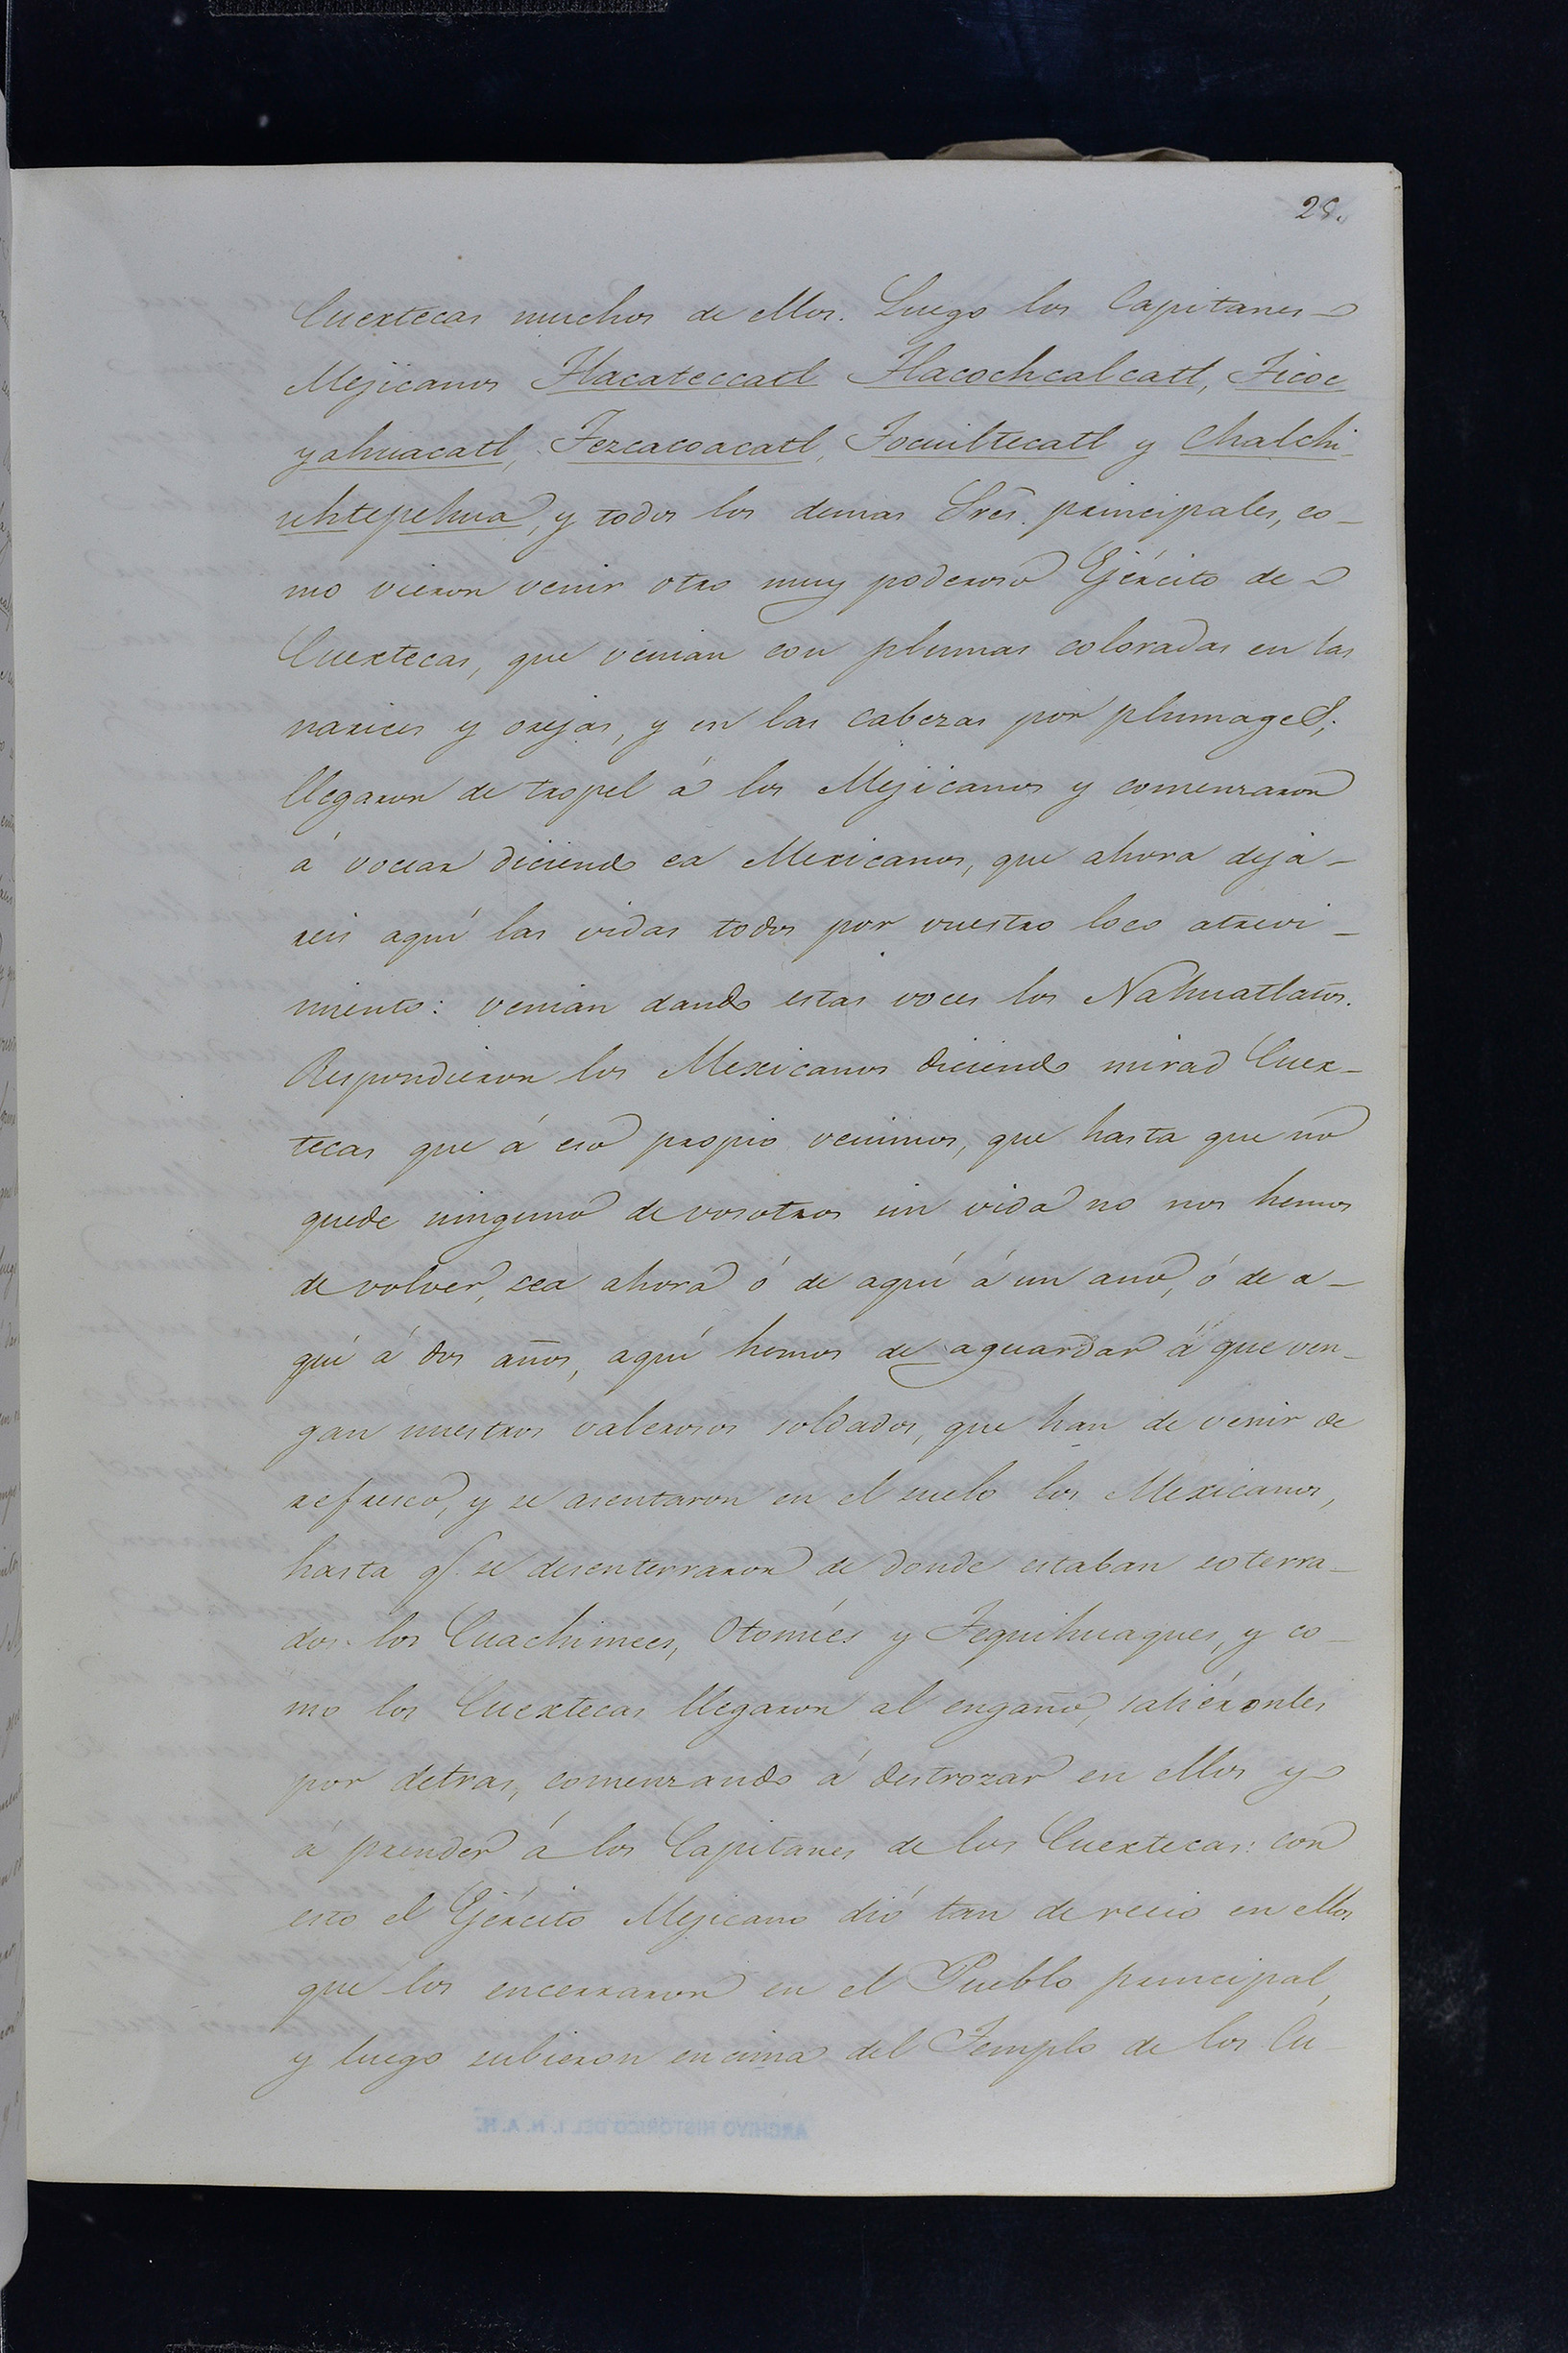 28.
Cuextecas muchos de ellos. Luego los Capitanes
Mejicanos Tlacateccatl Tlacochcalcatl, Ticoc
yahuacatl, Tezcacoacatl, Tocuiltecatl y Chalchi-
uhtepehua, y todos los demas Sres. principales, co-
mo vieron venir otro muy poderoso Ejército de
Cuextecas, que venian con plumas coloradas en las
narices y orejas, y en las cabezas por plumages;
llegaron de tropel á los Mejicanos y comenzaron
á vocear diciendo ea Mexicanos, que ahora deja-
reis aquí las vidas todos por vuestro loco atrevi-
miento: venian dando estas voces los Nahuatlatos.
Respondieron los Mexicanos diciendo mirad Cuex-
tecas que á eso propio venimos, que hasta que no
quede ninguno de vosotros sin vida no nos hemos
de volver, sea ahora ó de aquí á un año, ó de a-
quí á dos años, aquí hemos de aguardar á que ven-
gan nuestros valerosos soldados, que han de venir de
refresco, y se asentaron en el suelo los Mexicanos,
hasta q. se desenterraron de donde estaban soterra-
dos los Cuachimees, Otomíes y Tequihuaques, y co-
mo los Cuextecas llegaron al engaño, saliéronles
por detras, comenzando á destrozar en ellos y
á prender á los Capitanes de los Cuextecas: con
esto el Ejército Mejicano dió tan de recio en ellos
que los encerraron en el Pueblo principal,
y luego subieron encima del Templo de los Cu-
ARCHIVO HISTORICO DEL I. N. A. H.